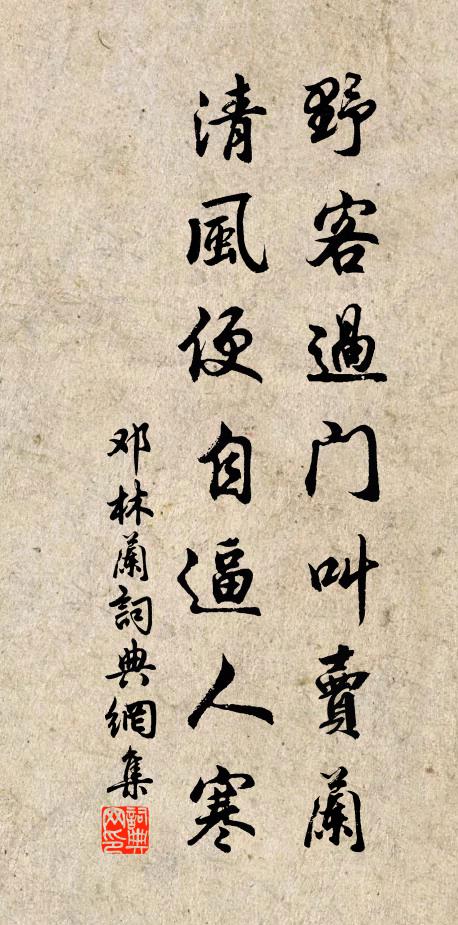 野客過門叫賣蘭
清風便自逼人寒
邓林蘭詞典網集
詞典网印